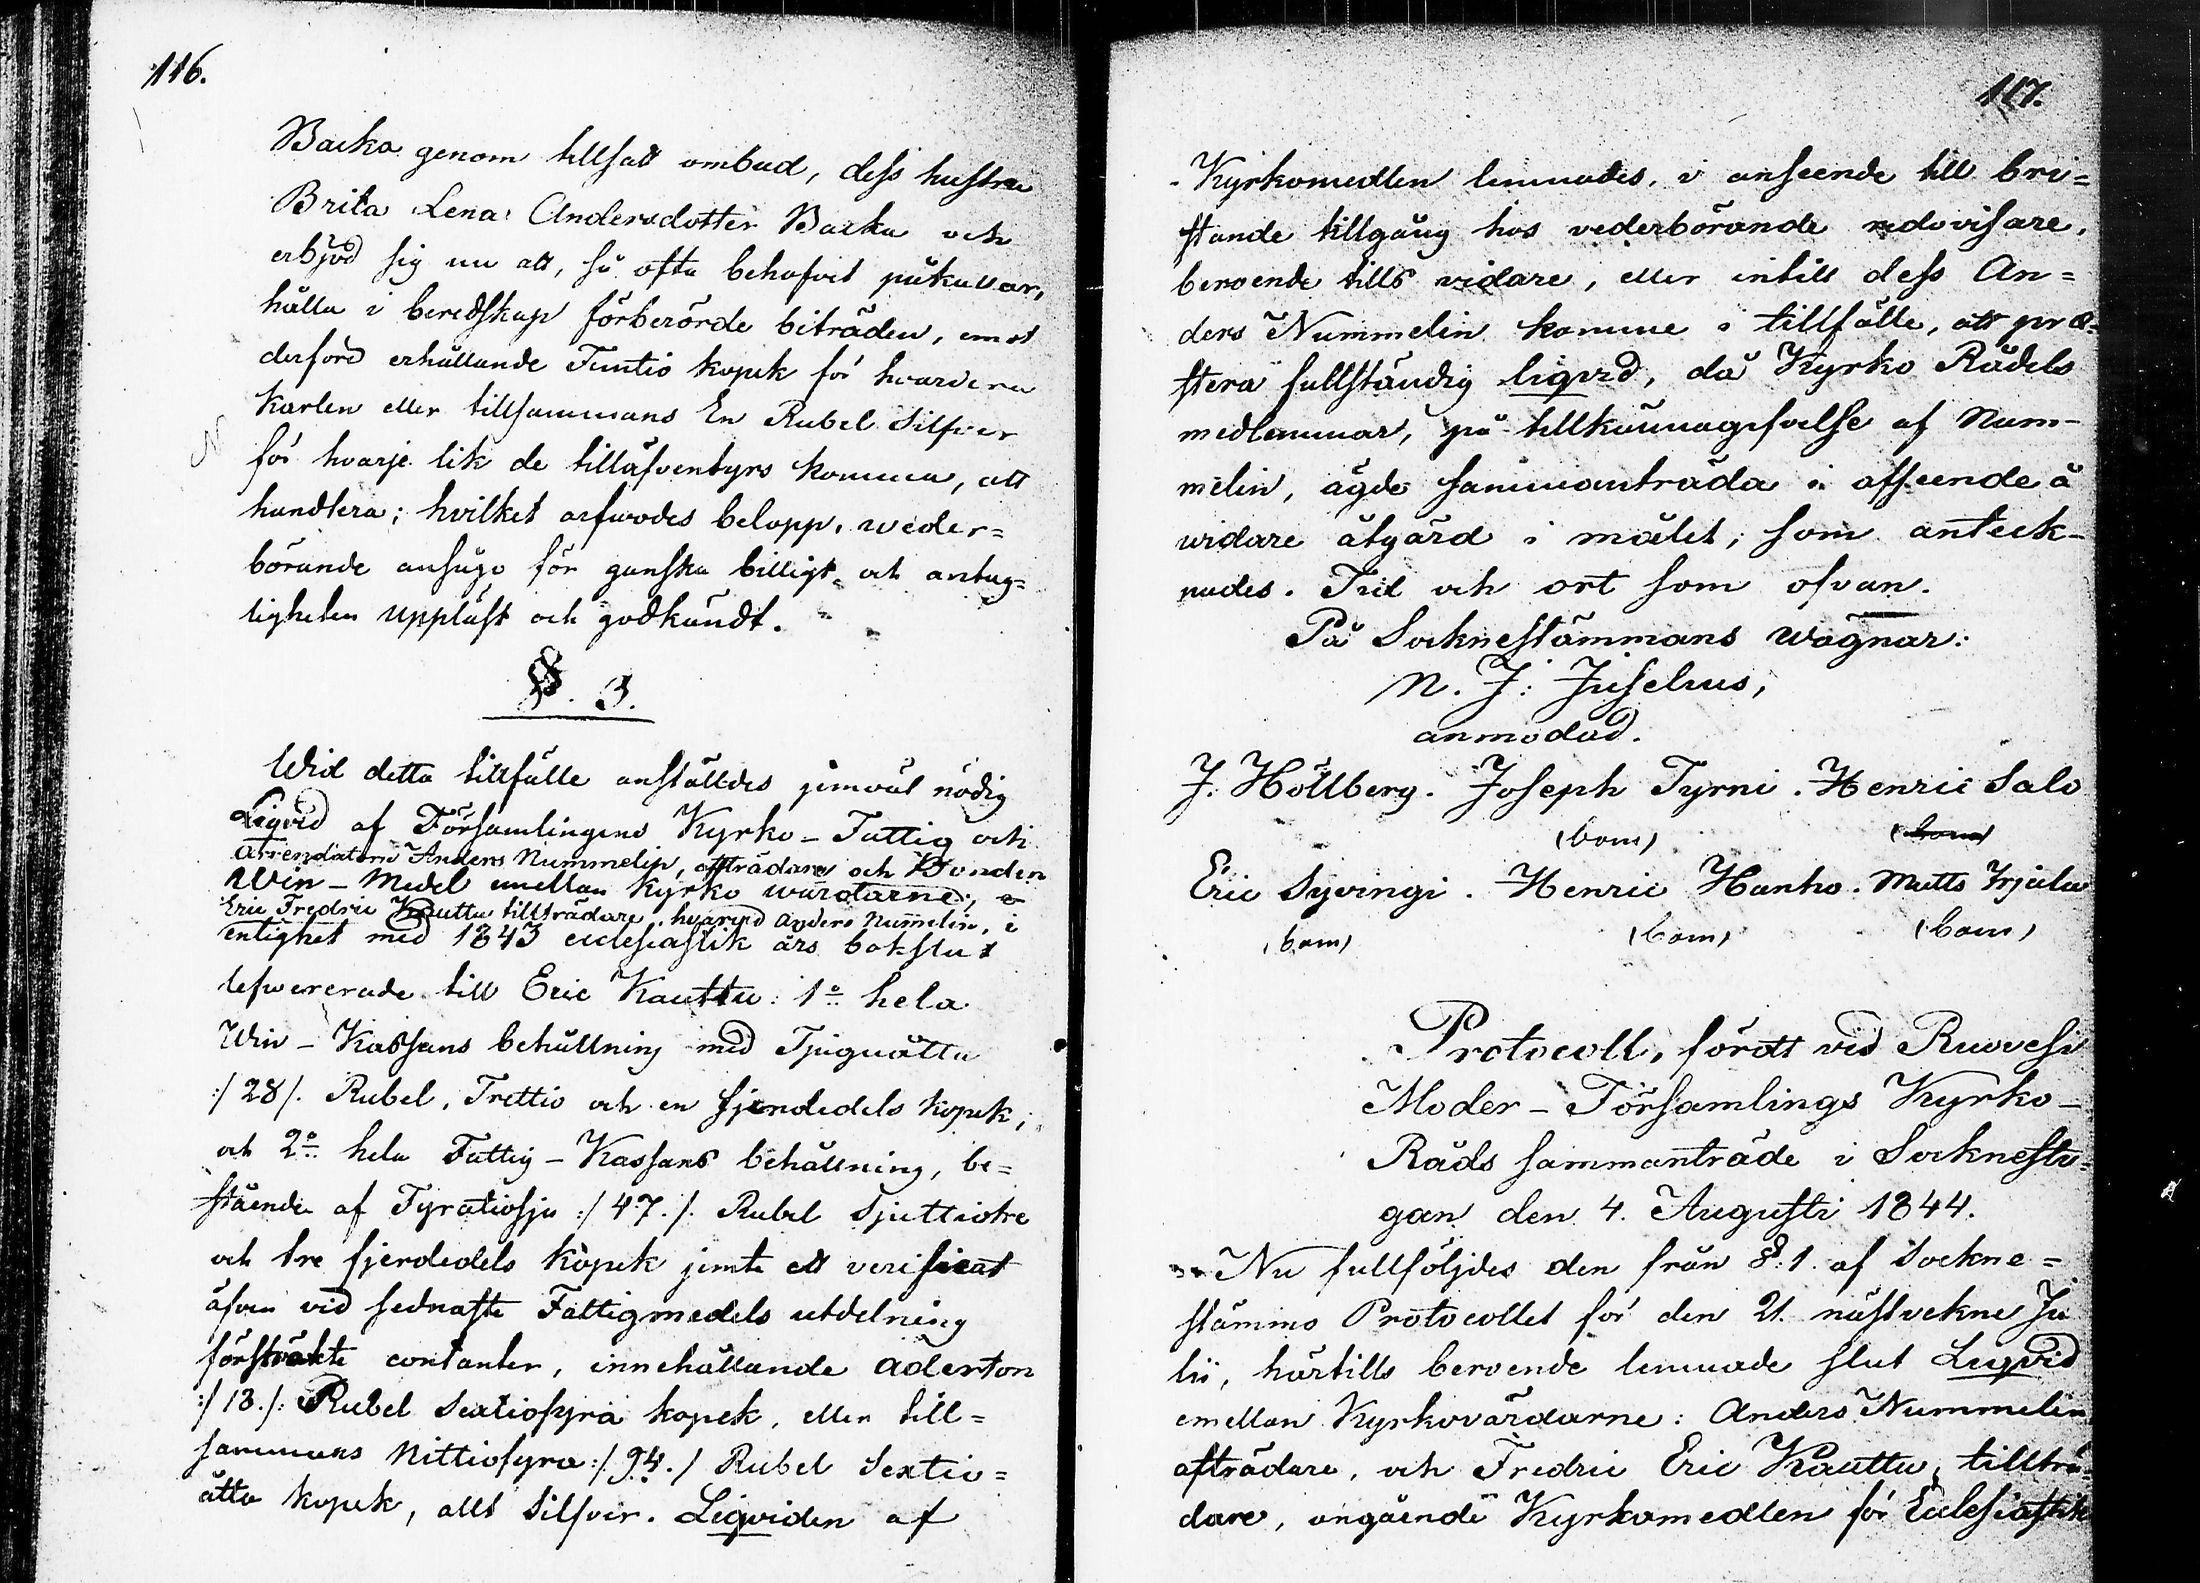 116.
Backa genom tillsatt ombud, dess hustru
Brita Lena Andersdotter Backa och
erbjöd sig nu att, så ofta behofvet påkallar,
hålla i beredskap förberörde biträden, emot
derföre erhållande Femtio kopek för hvardera
Karlen eller tillsammans En Rubel Silfver
för hvarje lik de tilläfventyrs komma, att
handtera; hvilket arfwodes belopp, weder=
börande ansågo för ganska billigt och antag=
ligheten uppläst och godkändt.
§. 3.
Wid detta tillfälle anställdes jemväl nödig
Liqvid af Församlingens Kyrko-Fattig och
Arrendatorn Anders Nummelin, afträdare och Bonden
Win-Medel emellan Kyrko wärdarne,
Eric Fredric Kauttu tillträdare, hvarvid Anders Nummelin, i
enlighet med 1843 ecclesiastik års bokslut
lefwererade till Eric Kauttu: 1o hela
Win-Kassans behållning med Tjuguåtta
:/28/. Rubel, Trettio och en fjerdedels kopek;
och 2o hela Fattig-Kassans behållning, be=
stående af Fyratiosju :/47./. Rubel Sjuttiotre
och tre fjerdedels kopek jemte ett verificat
äfven vid sednaste Fattigmedels utdelning
försträkte contanter, innehållande aderton
:/18./: Rubel Sextiofyra kopek, eller till=
sammans Nittiofyra :/94./ Rubel Sextio=
åtta kopek, allt Silfver. Liqviden af
117.
Kyrkomedlen lemnades, i anseende till bri=
stande tillgång hos vederbörande redovisare,
beroende tills vidare, eller intill dess An=
ders Nummelin komme i tillfälle, att præ=
stera fullständig liqvid, då Kyrko Rådets
medlemmar, på tillkännagifvelse af Num-
melin, ägde sammanträda i afseende å
widare åtgärd i målet; som anteck-
nades. Tid och ort som ofvan.
På Socknestämmans wägnar:
N. J: Juselius,
anmodad.
J. Höllberg. Joseph Tyrni. Henric Salo
(bom) (bom)
Eric Syvingi. Henric Hanho. Matts Yrjälä
(bom) (bom) (bom)
Protocoll, fördt vid Ruovesi
Moder-Församlings Kyrko-
Råds sammanträde i Socknestu=
gan den 4. Augusti 1844.
Nu fullföljdes den från §.1. af Sockne=
stämmo Protocollet för den 21. nästvekne Ju
lii, härtills beroende lemnade slut Liqvid
emellan Kyrkovärdarne: Anders Nummelin
afträdare, och Fredric Eric Kauttu, tillträ=
dare, angående Kyrkomedlen för Ecclesiastik